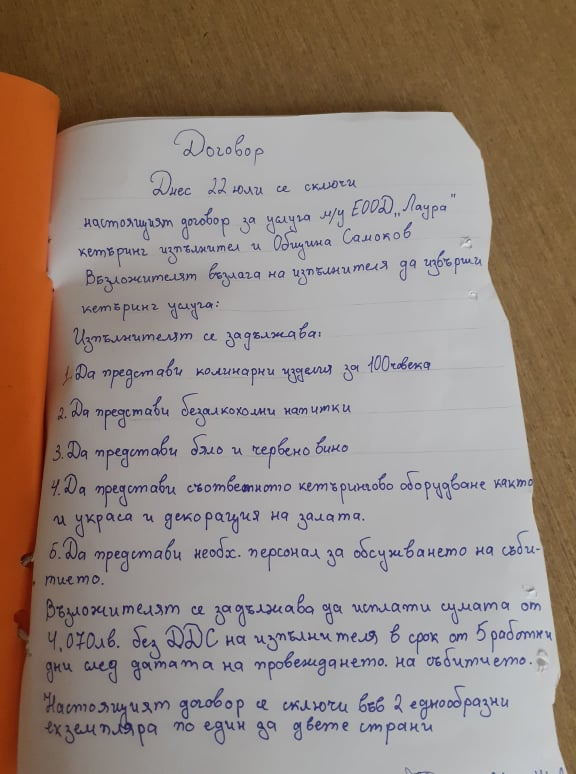 Договор
Днес 22 юли се сключи
настоящият договор за услуга м/у ЕООД „Лаура"
кетъринг изпълнител и Община Самоков
Възложителят възлага на изпълнителя да извърши
кетъринг услуга:
Изпълнителят се задължава:
1. Да представи колинарни изделия за 100 човека
2. Да представи безалкохолни напитки
3. Да представи бяло и червено вино
4. Да представи съответното кетърингово оборудване както
и украса и декорация на залата.
5. Да представи необх. персонал за обсужването на съби-
тието.
Възложителят се задължава да исплати сумата от
4,070лв. без ДДС на изпълнителя в срок от 5 работни
дни след датата на провеждането. на събитието.
Настоящият договор се сключи във 2 еднообразни
екземпляра по един за двете страни